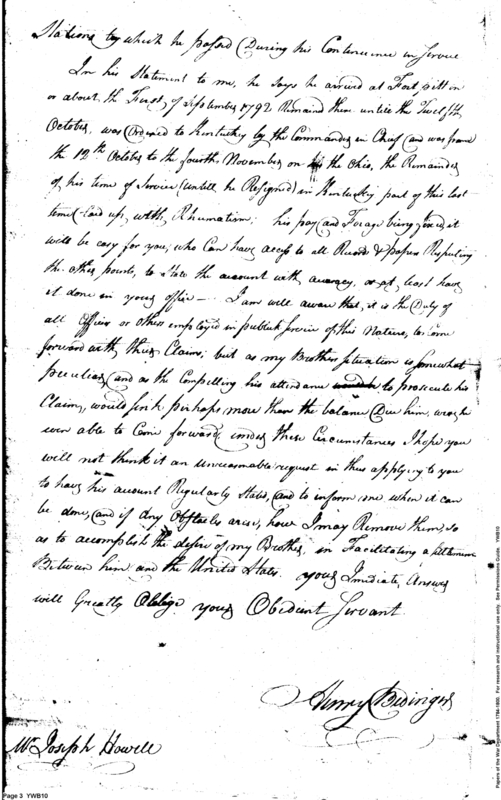 Stations to which he passed (During his Continuence in Service
In his Statement to me, he says he arrived at Fort pitt on
or about, the First, of September 1792 Remaind there untill the Twelfth
October. was (ordered to Kentucky by the Commander in Chief (and was from
the 12th October to the fourth, November on the Ohio, the Remainder
of, his time of Service (untill he Resigned) in Kentucky part of this last
time (laid up, with, Rhumatism; his pay (and Forage being fixed, it
will be easy for you, who Can have access to all Records & papers Respecting
the other points, to State the account with accuracy, or at, least have
it done in your office — I am well aware that, it is the Duty of
all Officers or others employed in publick Service of this Nation, to Come
forward with, their Claims; but as my Brothers situation is somewhat
peculiar, (and as the Compelling his attendance to prosecute his
Claim, would sink perhaps more than the balance (Due him, were he
even able to Come forward, under these Circumstances I hope you
will not think it an unreasonable request in thus applying to you
to have his account Regularly Stated, (and to inform me when it can
be done, (and if any Obstacles arise, how I may Remove them, so
as to accomplish the desire of my Brother, in Facilitating a settlement
Between him and the United States. your Imediate, Answer
will Greatly Oblige your Obedient Servant
Henry Bedinger
Mr Joseph Howell
Page 3 YWB10
Papers of the War Department 1784-1800. For research and instructional use only. See Permissions Guide. YWB10